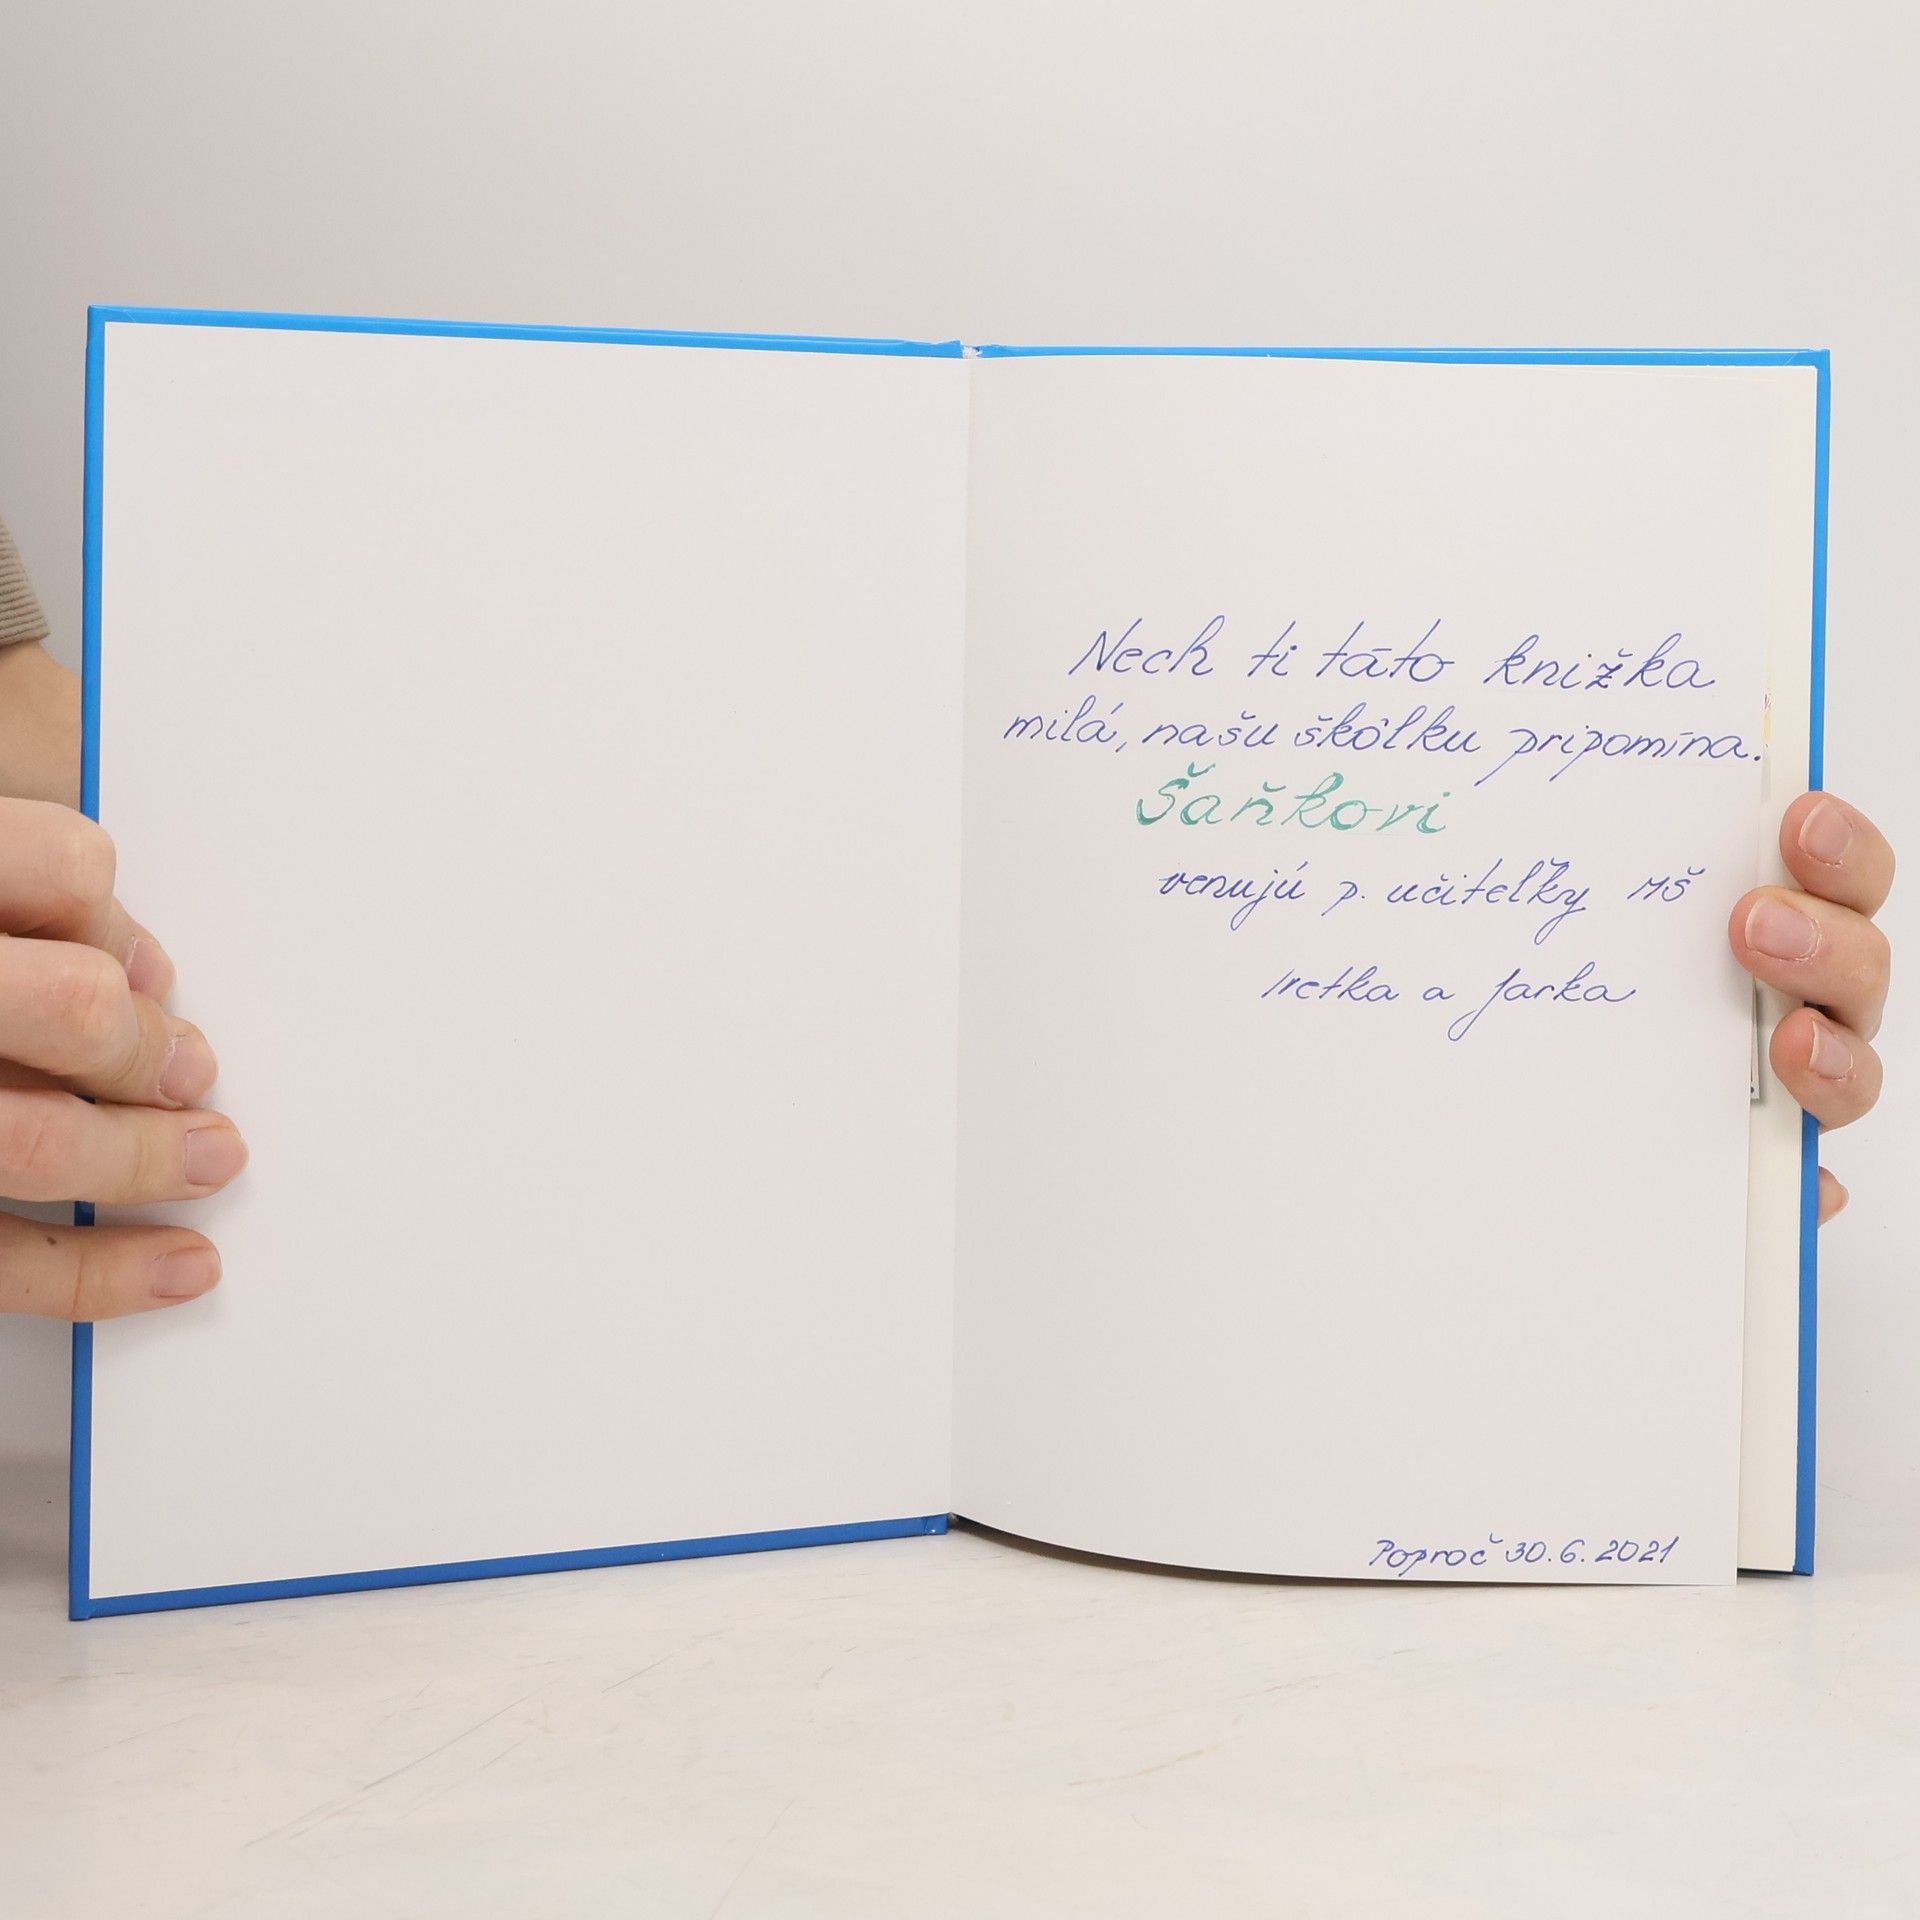 Nech ti táto knižka
milá, našu škôlku pripomína.
Šaňkovi
venujú p. učiteľky MŠ
Ivetka a Jarka
Poproč 30.6.2021